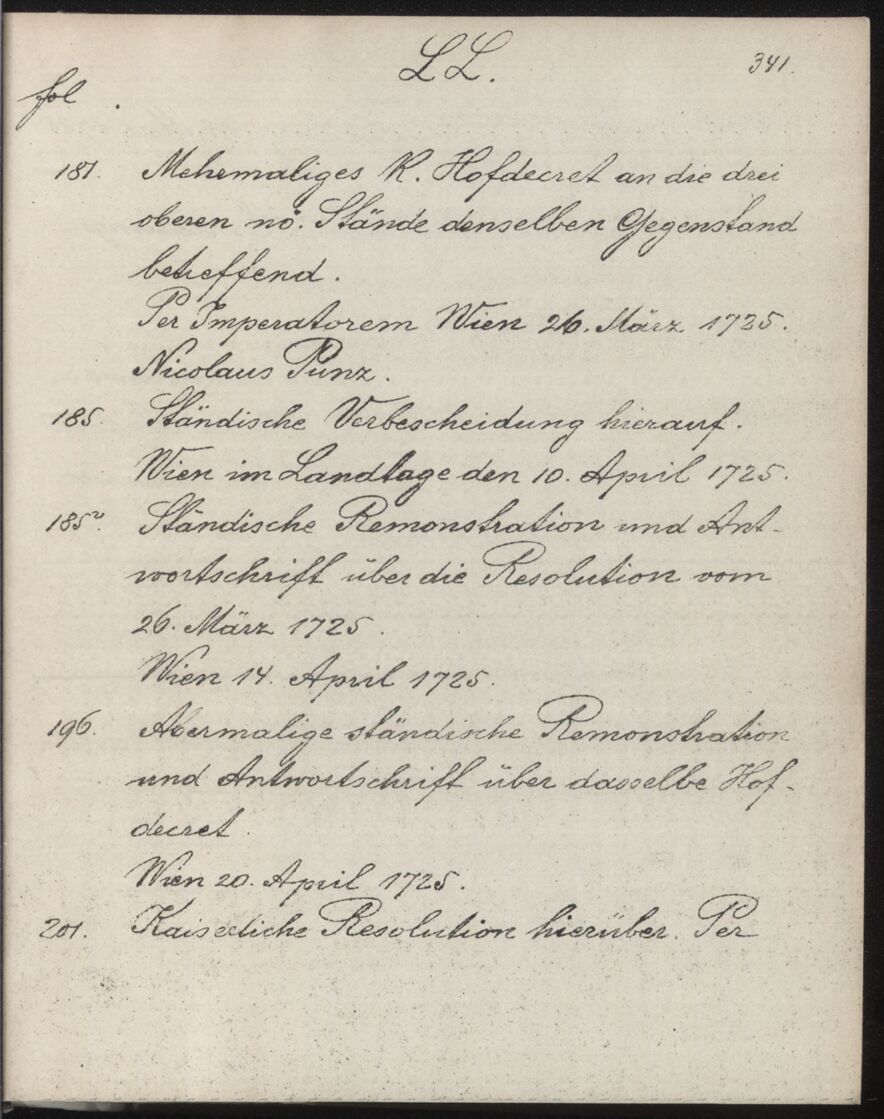 LL.
341.
fol.
181. Mehemaliges K. Hofdecret an die drei
oberen nö. Stände denselben Gegenstand
betreffend.
Per Imperatorem Wien 26. März 1725.
Nicolaus Punz.
185. Ständische Verbescheidung hierauf.
Wien im Landtage den 10. April 1725.
185v. Ständische Remonstration und Ant-
wortschrift über die Resolution vom
26. März 1725.
Wien 14. April 1725.
196. Abermalige ständische Remonstration
und Antwortschrift über dasselbe Hof-
decret.
Wien 20. April 1725.
201. Kaiserliche Resolution hierüber. Per